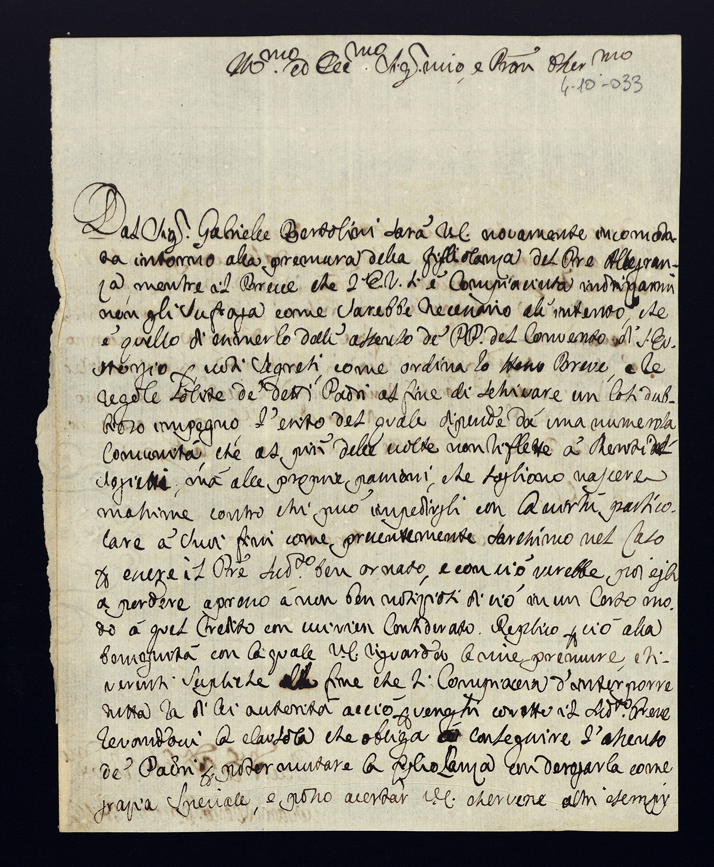 Ill.mo ed Ecc.mo Sig. mio, e Pron Osser.mo
4-10-033
Dal Sig.r Gabriele Bertolini sarà V.E. novamente incomoda-
ta intorno alla premura della figliolanza del Pre Allegran-
za mentre il Breve che l'E.V. si è Compiaciuta
non gli sufraga come sarebbe necessario all'intento che
è quello di esimerlo dall'assenso de' PP. del Convento di S. Eu-
storgio Suoi Segreti, come ordina lo steso Breve, e le
regole solite de' detti Padri al fine di schivare un Così dub-
bioso impegno l'esito del quale dipende da una numerosa
Comunità che al più delle volte non riflette a
, mà alle proprie passioni, che sogliono nascere
masime contro chi può impedirgli con Autorità partico-
lare à suoi fini come presentemente saresimo nel Caso
p esere il Pre Sud.to ben ornato, e con ciò verebbe poi egli
a perdere apreso à non ben di ciò in un Certo mo-
do à quel Credito con cui vien Considerato. Replico p ciò alla
benignità con la quale V.E. riguarda le mie premure,
verenti Supliche alle fine che si Compiacia d'interporre
tutta la di lei autorità acciò venghi corretto il Sud.to Breve
levandovi la clausola che obliga à conseguire l'assenso
de' Padri p poter mutare la figliolanza con derogarla come
grazia speciale, e poso acertar V.E. altri esempij